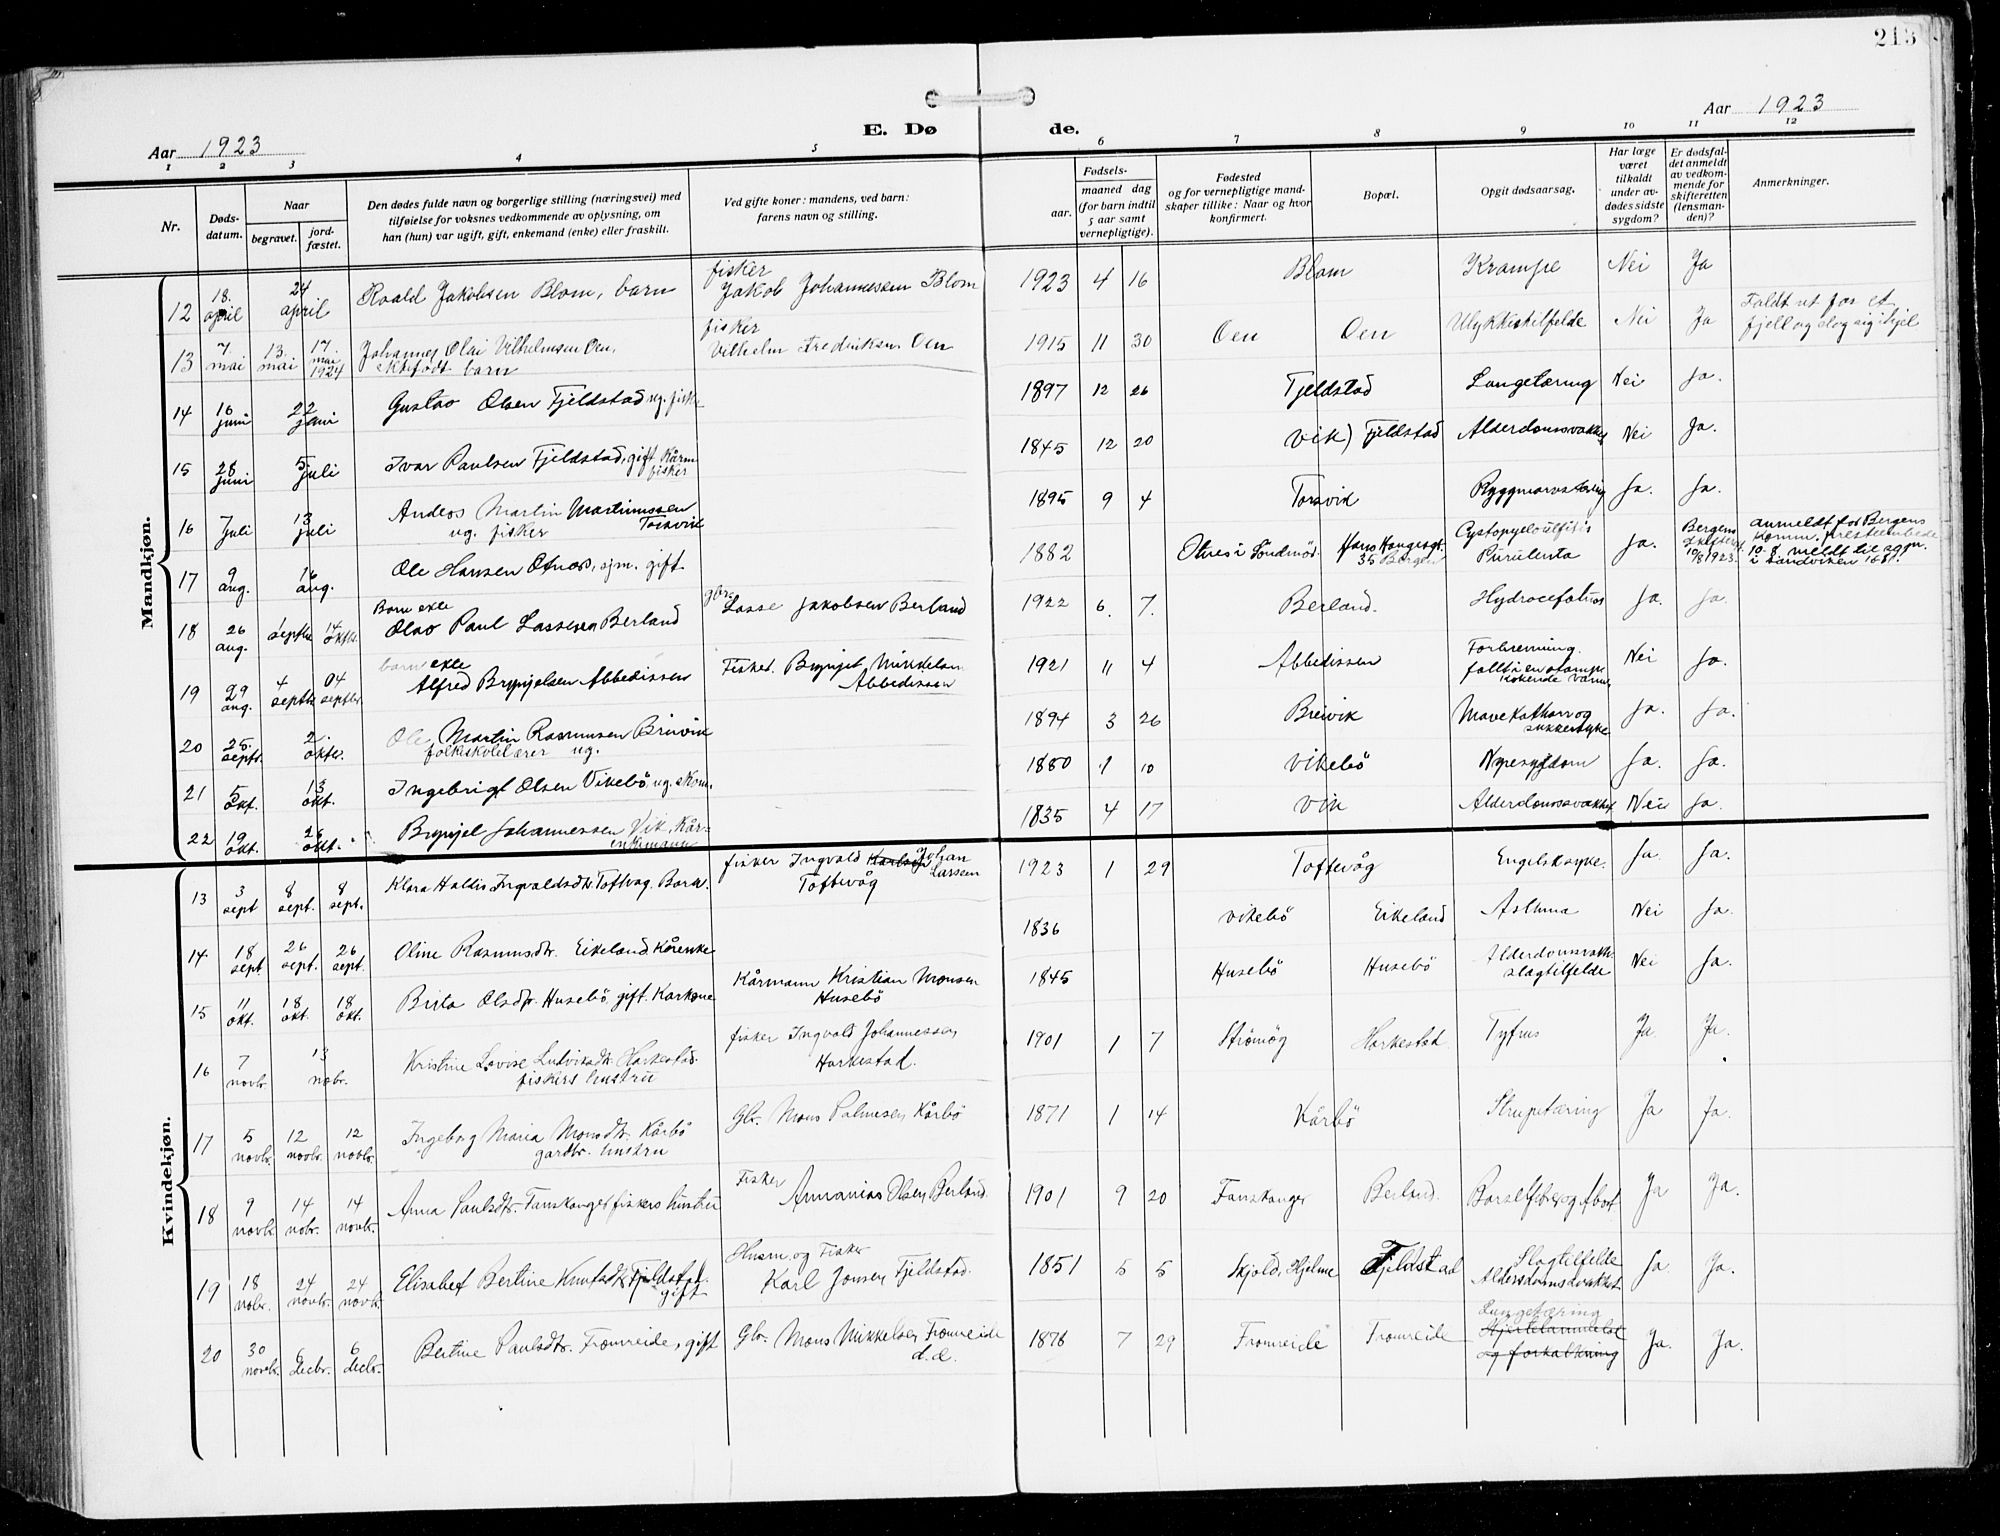 213
Aar 1923
E. Dø
de.
Aar 1923
1 2 3 4 5 6 7 8 9 10 11 12
Nr.
Døds-
datum.
Naar
begravet.
jord-
fæstet.
Den dødes fulde navn og borgerlige stilling (næringsvei) med
tilføielse for voksnes vedkommende av oplysning, om
han (hun) var ugift, gift, enkemand (enke) eller fraskilt.
Ved gifte koner: mandens, ved barn:
farens navn og stilling.
Fødsels-
aar.
maaned dag
(for barn indtil
5 aar samt
vernepligtige).
Fødested
og for vernepligtige mand-
skaper tillike: Naar og hvor
konfirmert.
Bopæl.
Opgit dødsaarsag.
Har læge
været
tilkaldt
under av-
dødes sidste
sygdom?
Er dødsfal-
det anmeldt
av vedkom-
mende for
skifteretten
(lensman-
den)?
Anmerkninger.
Mandkjøn.
12 18. april 24 april Roald Jakobsen Blom, barn fisker Jakob Johannessen Blom 1923 4 16 Blom Krampe Nei Ja
13 7. mai 13. mai 17. mai 1924 Johannes Olai Vilhelmsen Oen, ektefødt barn fisker Vilhelm Fredriksen Oen 1915 11 30 Oen Oen Ulykkestilfelde Nei Ja Faldt ut for et fjell og slog sig ihjel
14 16 juni 22 juni Gustav Olsen Fjeldstad ug. fisker 1897 12 26 Fjeldstad Lungetæring Nei Ja.
15 28 juni 5 juli Ivar Paulsen Fjeldstad, gift Kårm. fisker 1845 12 20 Vik) Fjeldstad Alderdomssvakhet Nei Ja.
16 7 juli 13 juli Anders Martin Martinussen Torsvik ug. fisker 1895 9 4 Torsvik Ryggmarvstæring Ja. Ja.
17 9 aug. 16 aug. Ole Hansen Otnes, sjm. gift. 1882 Otnes i Søndmör. Hans Haugesgt. 35 Bergen Cystopyelo Purulenta Ja. Bergens 10/8 1923. anmeldt for Bergens komm. presteembede 10.8. meldt til sgpr. i Sandviken 16 81.
18 26 aug. 1 septbr 14 oktbr. Barn ekte Olav Paul Lassesen Berland gbr. Lasse Jakobsen Berland 1922 6. 7. Berland. Hydrocefalus Ja. Ja.
19 29 aug. 4 septbr 04 septbr. barn ekte Alfred Brynjelsen Abbedissen Fisker. Brynjel Mikkelsen Abbedissen 1921 11 4 Abbedissen Forbrenning. fallt i en stamp kokende vann. Nei Ja.
20 25. septr. 2. oktbr. Ole Martin Rasmussen Breivik folkeskolelærer ug. 1894 3 26 Breivik Mavekatharr og sukkersyke Ja. Ja.
21 5 okt. 13 okt. Ingebrigt Olsen Vikebö, ug. skom. 1880 1 10 Vikebö Nyresygdom Ja. Ja.
22 19 okt. 26 okt. Brynjel Johannessen Vik, Kår- enkemann 1835 4 17 Vik Alderdomssvakhet Nei Ja.
Kvindekjøn.
13 3 sept 8 sept. 8 sept. Klara Haldis Ingvaldsdtr. Toftevåg. Barn. fisker Ingvald Johan Larssen Toftevåg 1923 1 29 Toftevåg Engelsksyke. Ja. Ja.
14 18 sept 26 sept. 26 sept. Oline Rasmusdtr. Eikeland. Kårenke 1836 Vikebö Eikeland Asthma Nei Ja.
15 11 okt. 18 okt. 18 okt. Brita Olsdtr. Husebö, gift. Karkone Kårmann Kristian Monsen Husebö 1845 Husebö Husebö Alderdomsvakh. slagtilfelde Nei Ja.
16 7 novbr 13 nobr. Kristine Lovise Ludvikadtr. Harkestad. fiskers hustru fisker Ingvald Johannessen Harkestad. 1901 1 7 Strömög Harkestad. Tyfus Ja. Ja.
17 5 novbr. 12 novbr. 12 novbr. Ingeborg Maria Monsdtr. Kårbö gardbr. hustru Gbr. Mons Palmesen Kårbö 1871 1 14 Kårbö Strupetæring Ja Ja.
18 9 novbr 14 nobr. 14 novbr. Anna Paulsdtr. Fanskanger fiskers hustru Fisker Annanias Olsen Berland. 1901 9 20 Fanskanger Berland. Barselfeber og Abort Ja Ja.
19 18 nobr. 24 novbr. 24 novbr. Elisabet Bertine Knutsdtr. Fjeldstad. gift Husm. og Fisker Karl Jonsen Fjeldstad. 1851 5 5 Skjold, Hjelme Fjeldstad Slagtilfelde Aldersdomssvakhet Ja. Ja.
20 30 novbr. 6 decbr. 6 decbr. Bertine Paulsdtr. Fromreide, gift Gbr. Mons Mikkelsen Fromreide d.æ. 1876 7 29 Fromreide Fromreide Lungetæring Hjertelammelse og forkalkning Ja. Ja.